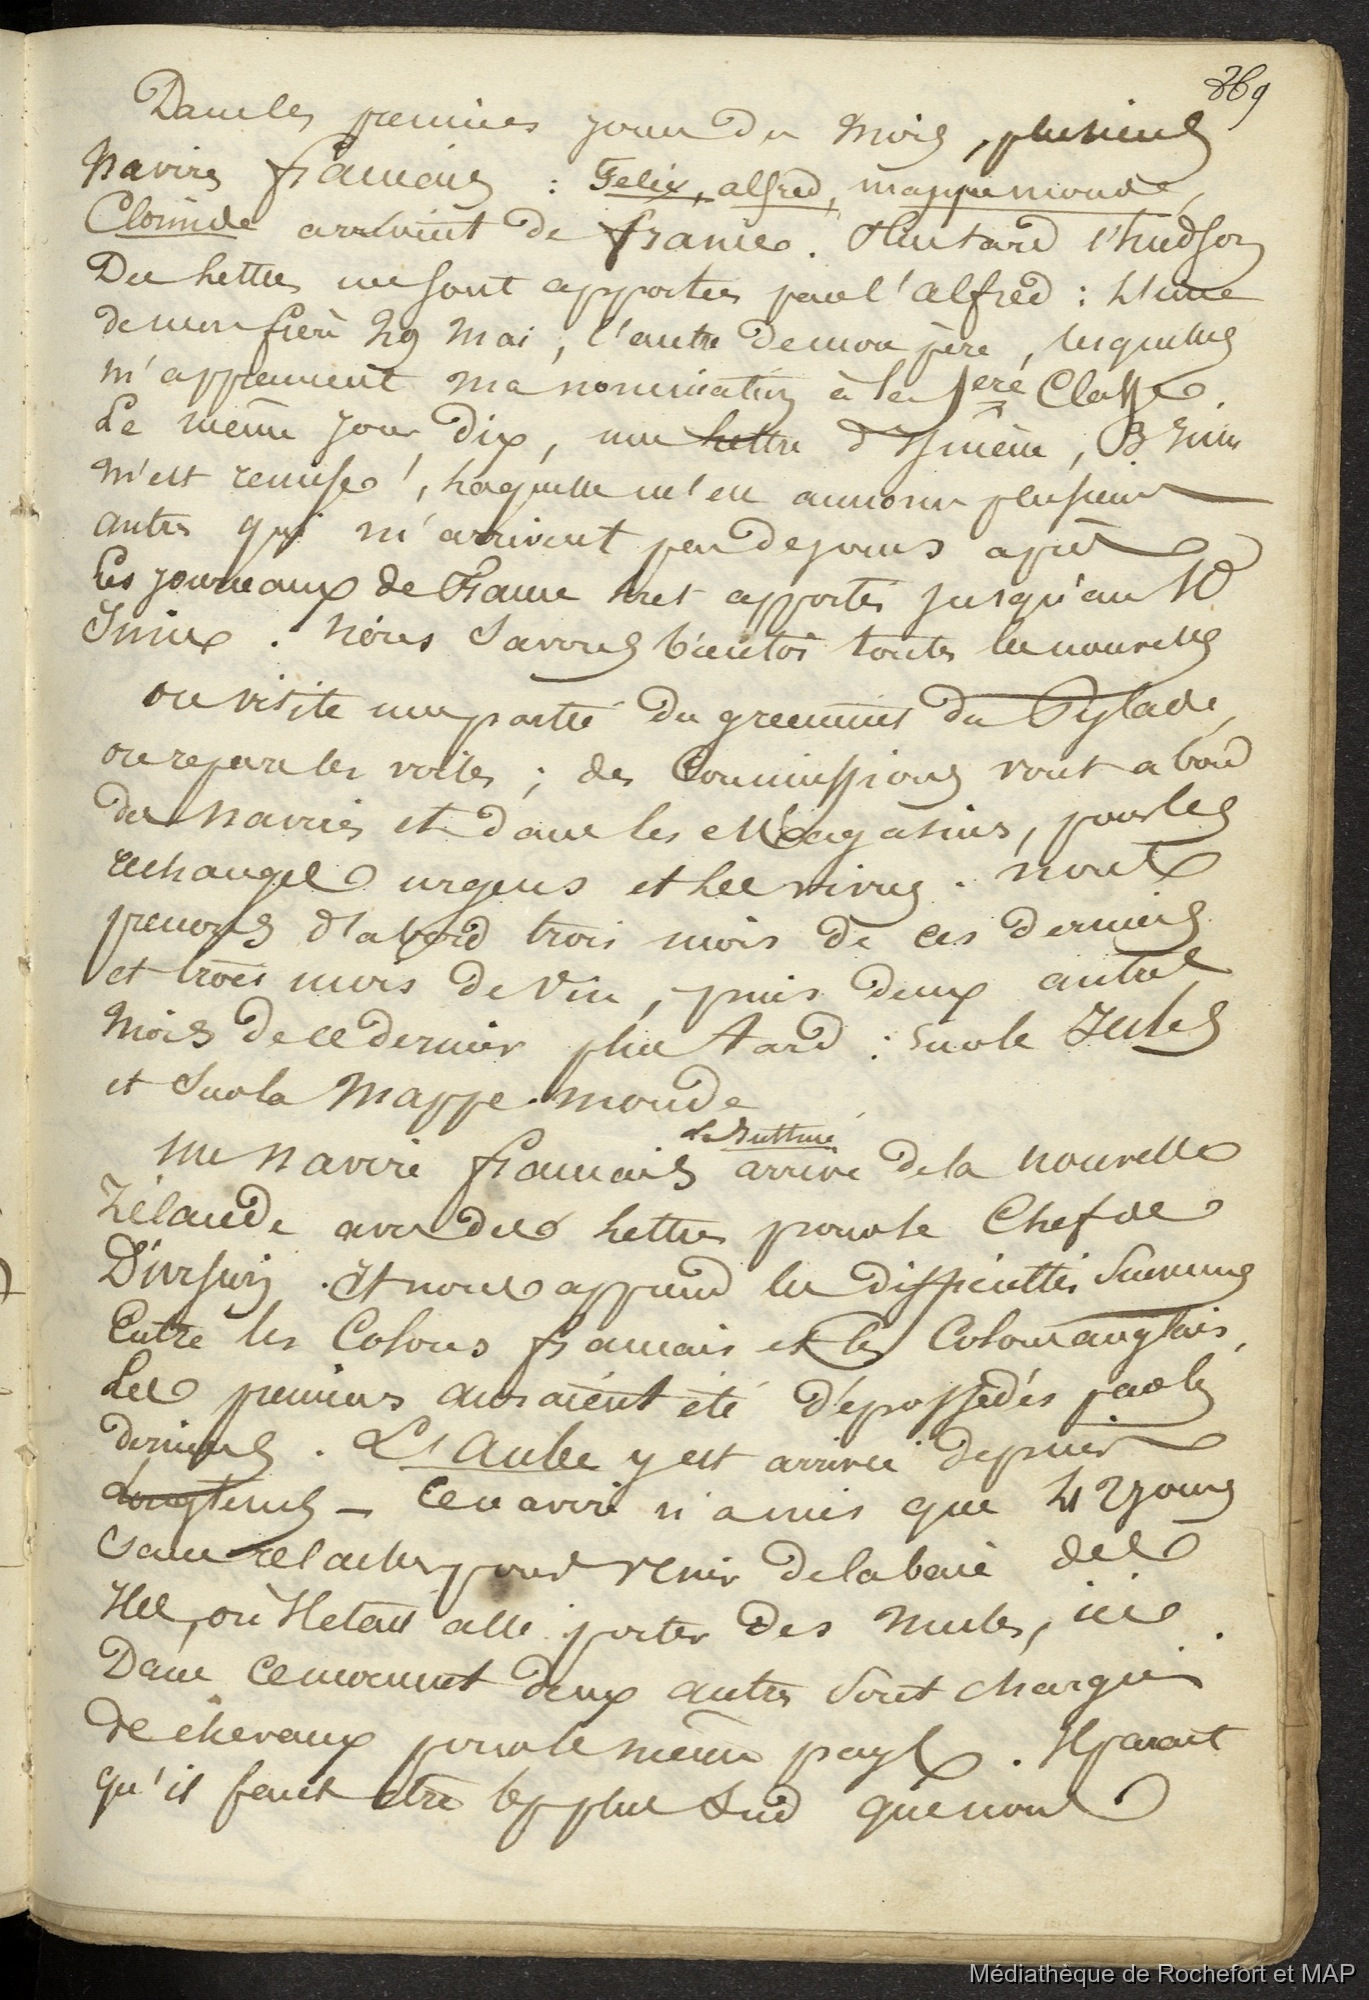 369
Dans les premiers jours du mois, plusieurs
navires français : Felix, alfred, mappemonde,
Clorinde arrivent de france. Plus tard l'hudson
Des lettres me sont apportées par l'alfred : L'une
de mon frère 29 mai, l'autre de mon père, lesquelles
m'apprennent ma nomination à la 1ere Classe.
Le même jour, dix, une lettre d'Ismène, 3 Juin
m'est remise, laquelle m'en annonce plusieurs
autres qui m'arrivent peu de jours après
Les journaux de France sont apportés jusqu'au 10
Juin. Nous savons bientôt toutes les nouvelles
on visite une partie du greement du Pylade,
on repare les voiles ; des Commissions vont a bord
des navires et dans les Magasins, pour les
rechanges urgens et les vivres. nous
prenons d'abord trois mois de ces derniers
et trois mois de vin, puis deux autres
mois de ce dernier plus tard : sur le Jules
et sur la Mappe-monde
le Justine
un navire français arrive de la nouvelle
Zélande avec des lettres pour le Chef de
Division. Il nous apprend les difficultés survenues
Entre les Colons français et les Colons anglais,
Les premiers auraient été dépossédés par les
derniers. L'Aube y est arrivée depuis
Longtems — Ce navire n'a mis que 42 jours
sans relacher pour venir de la baie des
Iles, où il etait allé porter des mules, ici.
Dans ce moment deux autres sont chargés
de chevaux pour le même pays. Il parait
qu'il faut être plus Sud que nous